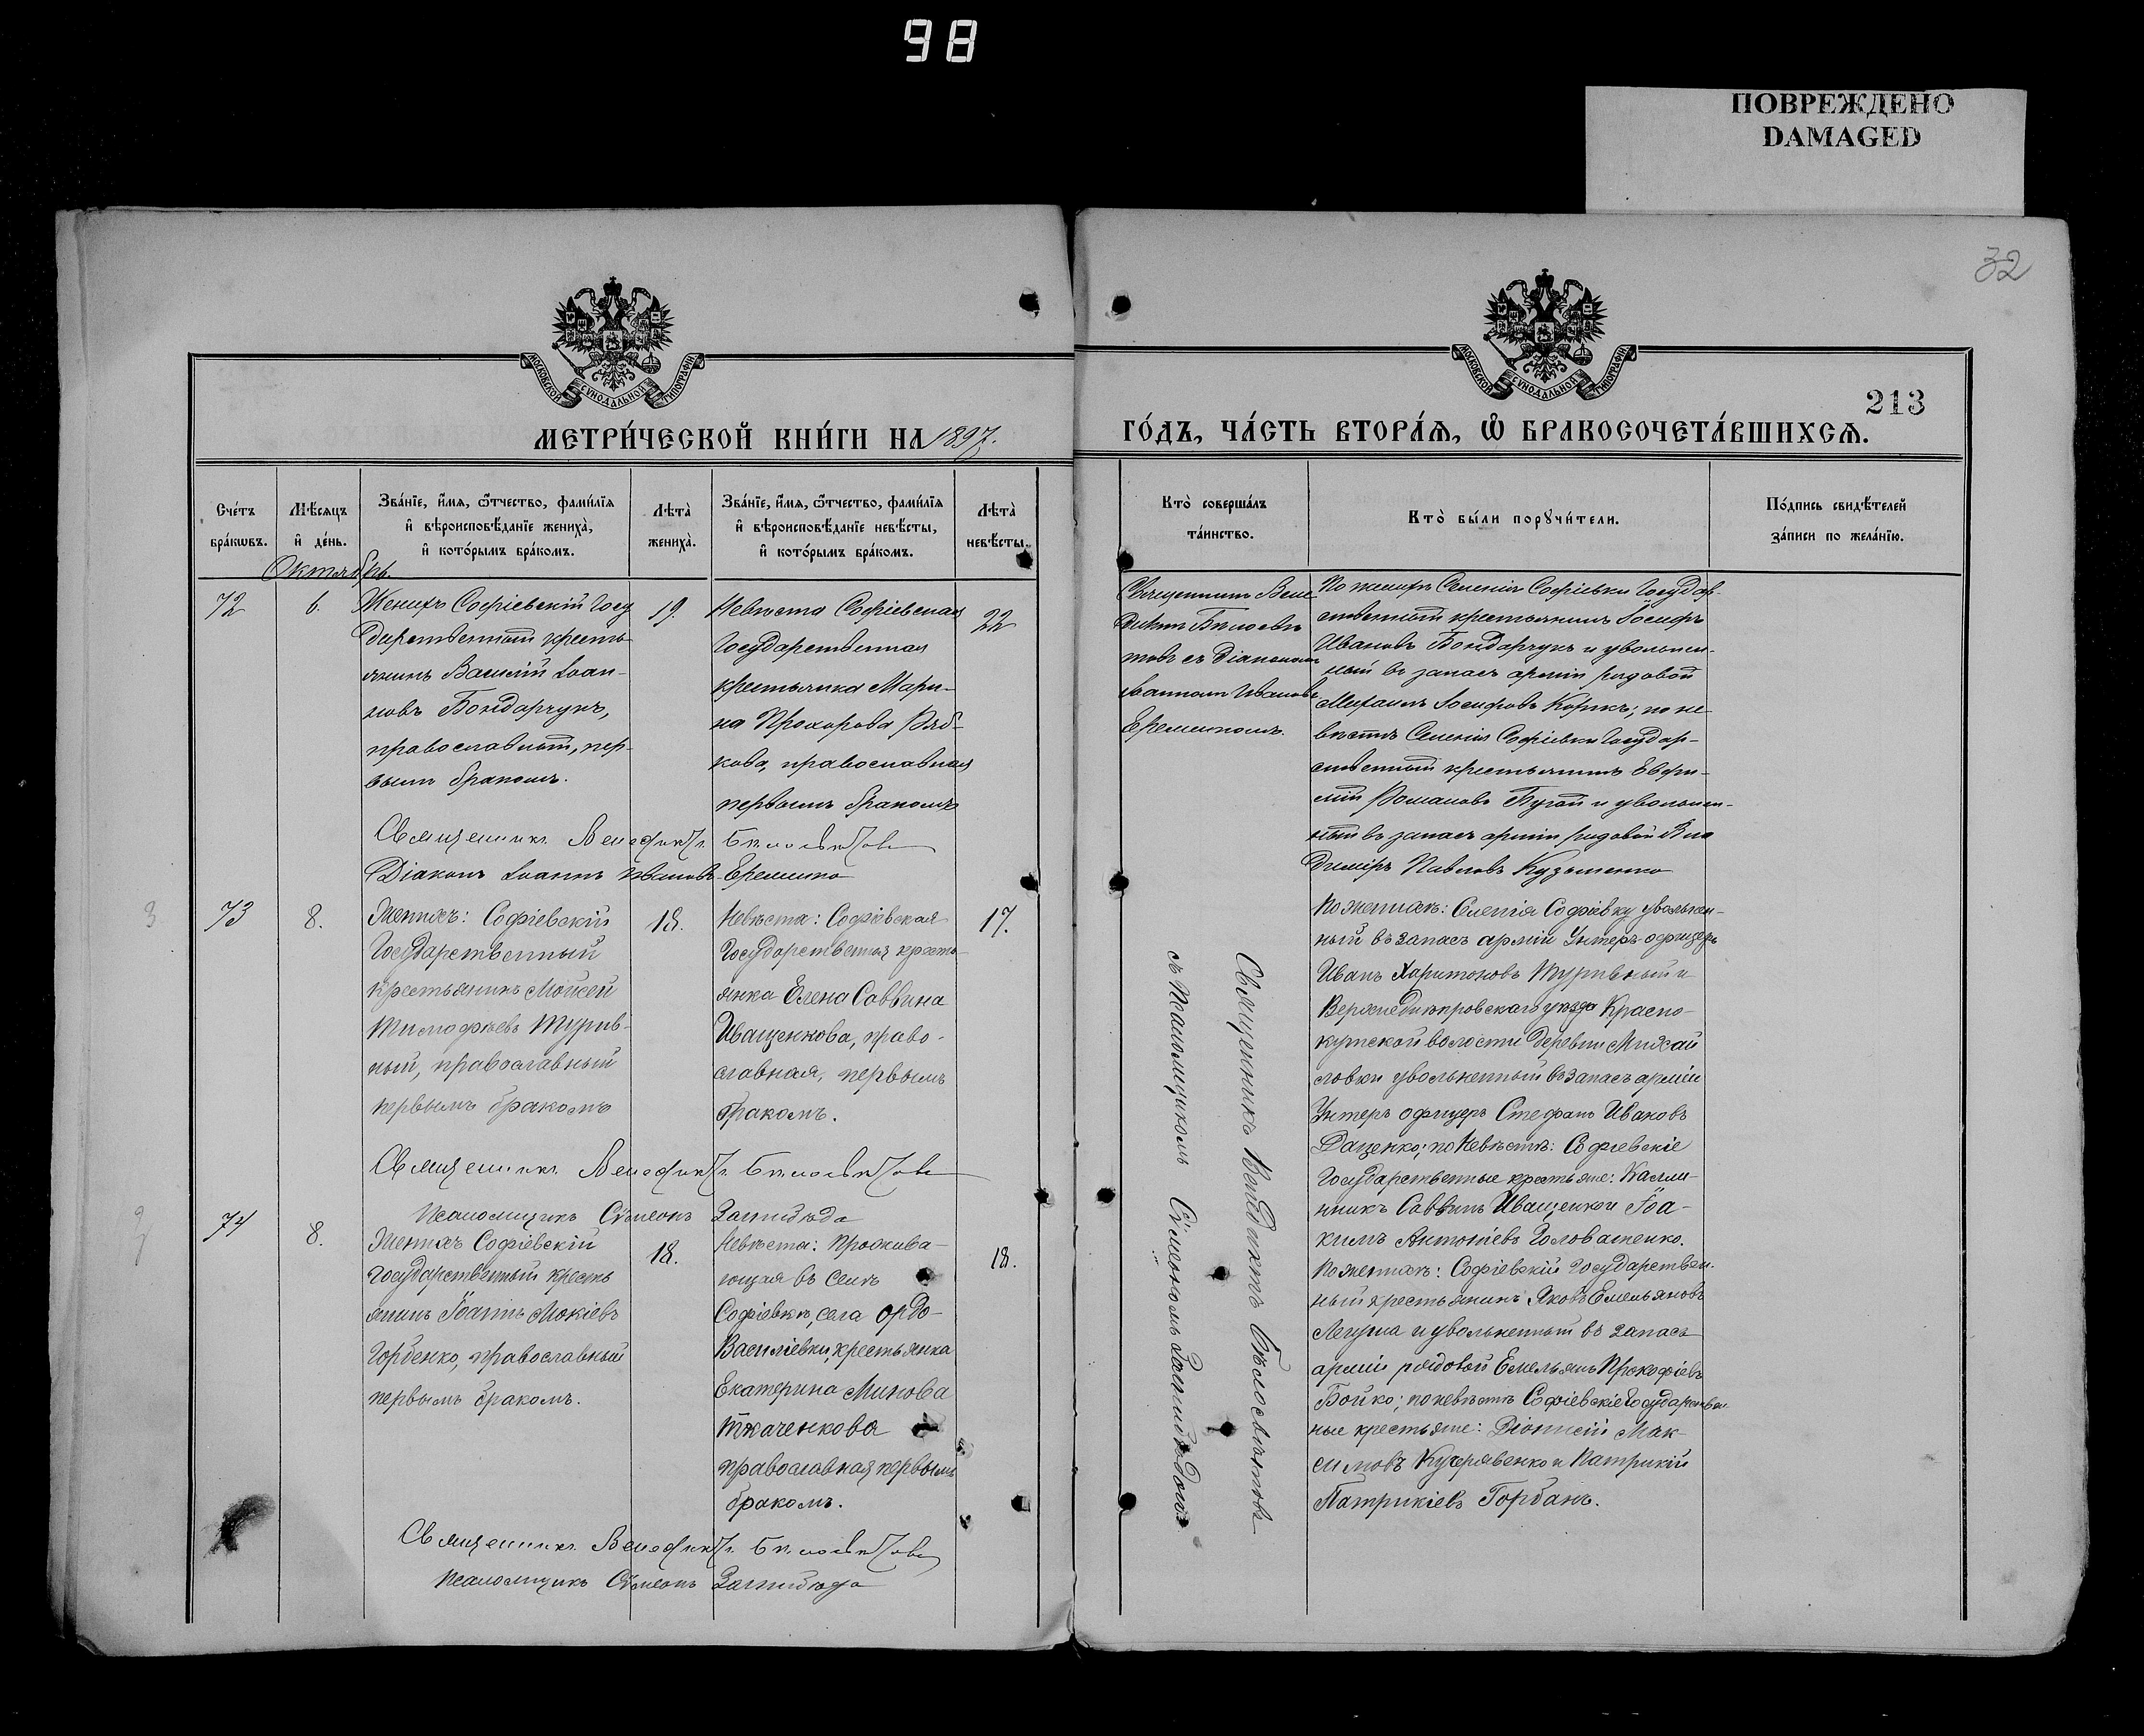 98
ПОВРЕЖДЕНО
DAMAGED
32
МОСКОВСКОЙ СУНОДАЛЬНОЙ ТИПОГРАФІИ
МОСКОВСКОЙ СУНОДАЛЬНОЙ ТИПОГРАФІИ
213
МЕТРИ́ЧЕСКОЙ КНИ́ГИ НА 1897.
ГО́ДЪ, ЧА́СТЬ ВТОРА́Ѧ, Ѡ БРАКОСОЧЕТА́ВШИХСѦ.
Сче́тъ
бра́кωвъ.
Мѣ́сяцъ
и҆ де́нь.
Зва́нїе, и҆́мя, ѻ҆́тчество, фами́лїя
и҆ вѣроисповѣ́данїе жениха̀,
и҆ кото́рымъ бра́комъ.
Лѣ́та̀
жениха̀.
Зва́нїе, и҆́мя, ѻ҆́тчество, фами́лїя
и҆ вѣроисповѣ́данїе невѣ́сты,
и҆ кото́рымъ бра́комъ.
Лѣ́та̀
невѣ́сты.
Кто̀ соверша́лъ
та́инство.
Кто̀ бы́ли порꙋчи́тели.
По́дпись свидѣ́телей
за́писи по жела́нїю.
Октябрь.
72
6.
Женихъ Софіевскій Госу
дарственный кресть
янинъ Василій Іоан-
новъ Бондарчукъ,
православный, пер-
вымъ бракомъ.
19.
Невѣста Софіевская
Государственная
крестьянка Мари-
на Прохорова Ряб-
кова, православная
первымъ бракомъ
22
Священникъ Вене
диктъ Бѣлосвѣ
товъ съ Діакономъ
Іоанномъ Иванов
Еременкомъ.
По женихѣ Селенія Софіевки Государ-
ственный крестьянинъ Іосифъ
Ивановъ Бондарчукъ и уволен-
ный въ запасъ арміи рядовой
Михаилъ Іосифовъ Коржъ; по не-
вѣстѣ Селенія Софіевки Государ-
ственный крестьянинъ Евфи-
мій Романовъ Бугай и уволен-
ный въ запасъ арміи рядовой Вла
диміръ Павловъ Кузьменко
Священникъ Венедиктъ Бѣлосвѣтовъ
Діаконъ Іоаннъ Ивановъ Еременко
3
73
8.
Женихъ: Софіевскій
Государственный
крестьянинъ Мойсей
Тимофѣевъ Турив-
ный, православный
первымъ бракомъ
18.
Невѣста: Софіевская
Государственная кресть-
янка Елена Саввина
Иващенкова, право-
славная, первымъ
бракомъ.
17.
Священникъ Венедиктъ Бѣлосвѣтовъ
съ Псаломщикомъ Сѵмеономъ
По женихѣ: Селенія Софіевки уволен-
ный въ запасъ арміи Унтеръ-офицеръ
Иванъ Харитоновъ Туривный и
Верхнеднѣпровскаго уѣзда Красно-
кутской волости деревни Михай
ловки уволенный въ запасъ арміи
Унтеръ офицеръ Стефанъ Ивановъ
Даценко; по невѣстѣ: Софіевскіе
Государственные крестьяне: Калли-
никъ Саввинъ Иващенко и Іоа-
кимъ Антоніевъ Головатенко.
Священникъ Венедиктъ Бѣлосвѣтовъ
Псаломщикъ Сѵмеонъ
74
8.
Женихъ Софіевскій
Государственный кресть
янинъ Іоаннъ Мокіевъ
Горбенко, православный
первымъ бракомъ.
18.
Невѣста: прожива-
ющая въ селѣ
Софіевкѣ, села Ордо-
Василіевки, крестьянка
Екатерина Минова
Ткаченкова
православная первымъ
бракомъ.
18.
По женихѣ: Софіевскій Государствен-
ный крестьянинъ Яковъ Емельяновъ
Легуша и уволенный въ запасъ
арміи рядовой Емельянъ Прокофіевъ
Бойко; по невѣстѣ Софіевскіе Государствен
ные крестьяне: Діонисій Мак-
симовъ Кучерявенко и Патрикій
Патрикіевъ Горбань.
Священникъ Венедиктъ Бѣлосвѣтовъ
Псаломщикъ Сѵмеонъ